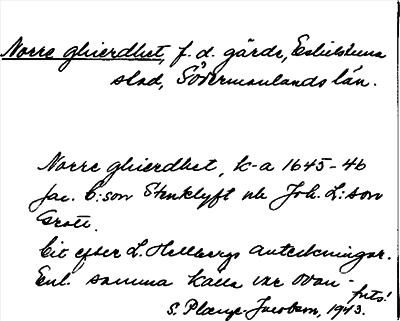 Norre ghierdhet, f. d. gärde, Eskilstuna
stad, Södermanlands län.
Norre ghierdhet, k-a 1645-46
Jac. C:son Stenklyft och Joh. L:son
Grott.
Cit efter L. Hellbergs anteckningar.
Enl. samma källa var ovan-
forts!
S. Plænge Jacobson, 1943.